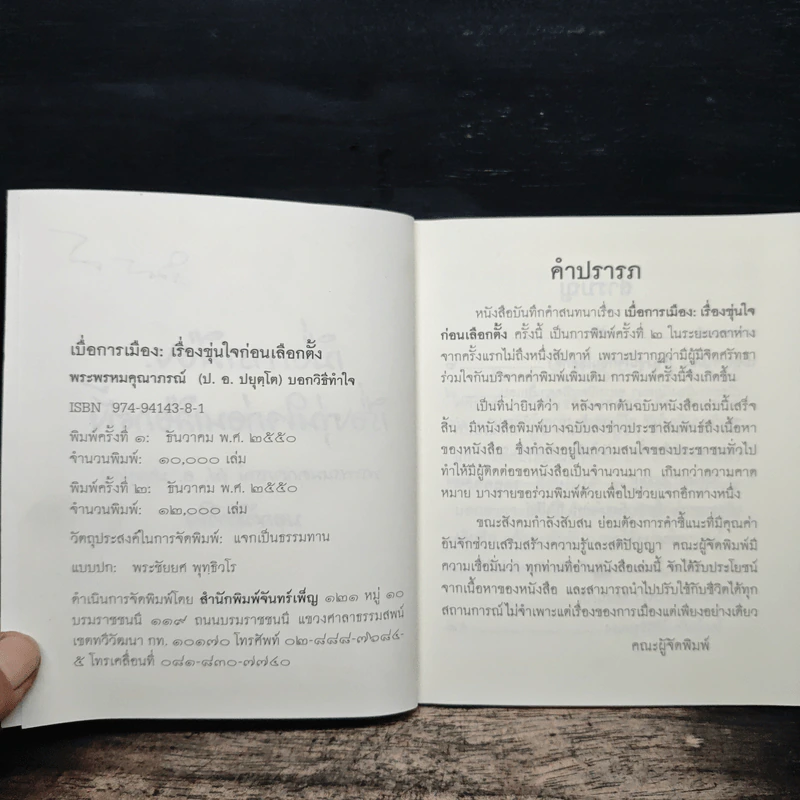 เบื่อการเมือง: เรื่องขุ่นใจก่อนเลือกตั้ง
พระพรหมคุณาภรณ์ (ป. อ. ปยุตฺโต) บอกวิธีทำใจ
ISBN 974-94143-8-1
พิมพ์ครั้งที่ ๑: ธันวาคม พ.ศ. ๒๕๕๐
จำนวนพิมพ์: ๑๐,๐๐๐ เล่ม
พิมพ์ครั้งที่ ๒: ธันวาคม พ.ศ. ๒๕๕๐
จำนวนพิมพ์: ๑๒,๐๐๐ เล่ม
วัตถุประสงค์ในการจัดพิมพ์: แจกเป็นธรรมทาน
แบบปก: พระชัยยศ พุทฺธิวโร
ดำเนินการจัดพิมพ์โดย สำนักพิมพ์จันทร์เพ็ญ ๑๒๑ หมู่ ๑๐
บรมราชชนนี ๑๑๙ ถนนบรมราชชนนี แขวงศาลาธรรมสพน์
เขตทวีวัฒนา กท. ๑๐๑๗๐ โทรศัพท์ ๐๒-๘๘๘-๗๖๘๔-
๕ โทรเคลื่อนที่ ๐๘๑-๘๓๐-๗๗๔๐
คำปรารภ
หนังสือบันทึกคำสนทนาเรื่อง เบื่อการเมือง: เรื่องขุ่นใจ
ก่อนเลือกตั้ง ครั้งนี้ เป็นการพิมพ์ครั้งที่ ๒ ในระยะเวลาห่าง
จากครั้งแรกไม่ถึงหนึ่งสัปดาห์ เพราะปรากฏว่ามีผู้มีจิตศรัทธา
ร่วมใจกันบริจาคค่าพิมพ์เพิ่มเติม การพิมพ์ครั้งนี้จึงเกิดขึ้น
เป็นที่น่ายินดีว่า หลังจากต้นฉบับหนังสือเล่มนี้เสร็จ
สิ้น มีหนังสือพิมพ์บางฉบับลงข่าวประชาสัมพันธ์ถึงเนื้อหา
ของหนังสือ ซึ่งกำลังอยู่ในความสนใจของประชาชนทั่วไป
ทำให้มีผู้ติดต่อขอหนังสือเป็นจำนวนมาก เกินกว่าความคาด
หมาย บางรายขอร่วมพิมพ์ด้วยเพื่อไปช่วยแจกอีกทางหนึ่ง
ขณะสังคมกำลังสับสน ย่อมต้องการคำชี้แนะที่มีคุณค่า
อันจักช่วยเสริมสร้างความรู้และสติปัญญา คณะผู้จัดพิมพ์มี
ความเชื่อมั่นว่า ทุกท่านที่อ่านหนังสือเล่มนี้ จักได้รับประโยชน์
จากเนื้อหาของหนังสือ และสามารถนำไปปรับใช้กับชีวิตได้ทุก
สถานการณ์ไม่จำเพาะแต่เรื่องของการเมืองแต่เพียงอย่างเดียว
คณะผู้จัดพิมพ์